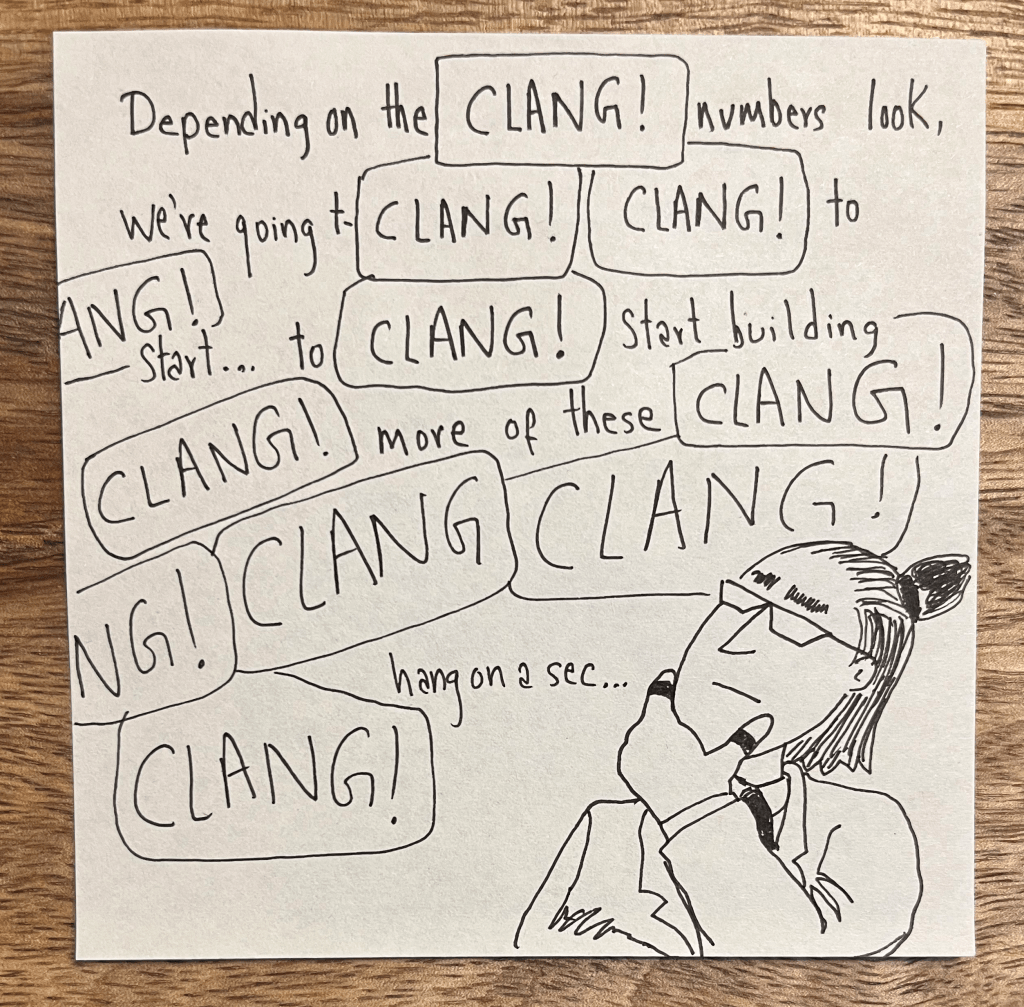 Depending on the CLANG! numbers look,
we're going t- CLANG! CLANG! to
ANG! start... to CLANG! start building
CLANG! more of these CLANG!
NG! CLANG CLANG!
hang on a sec...
CLANG!